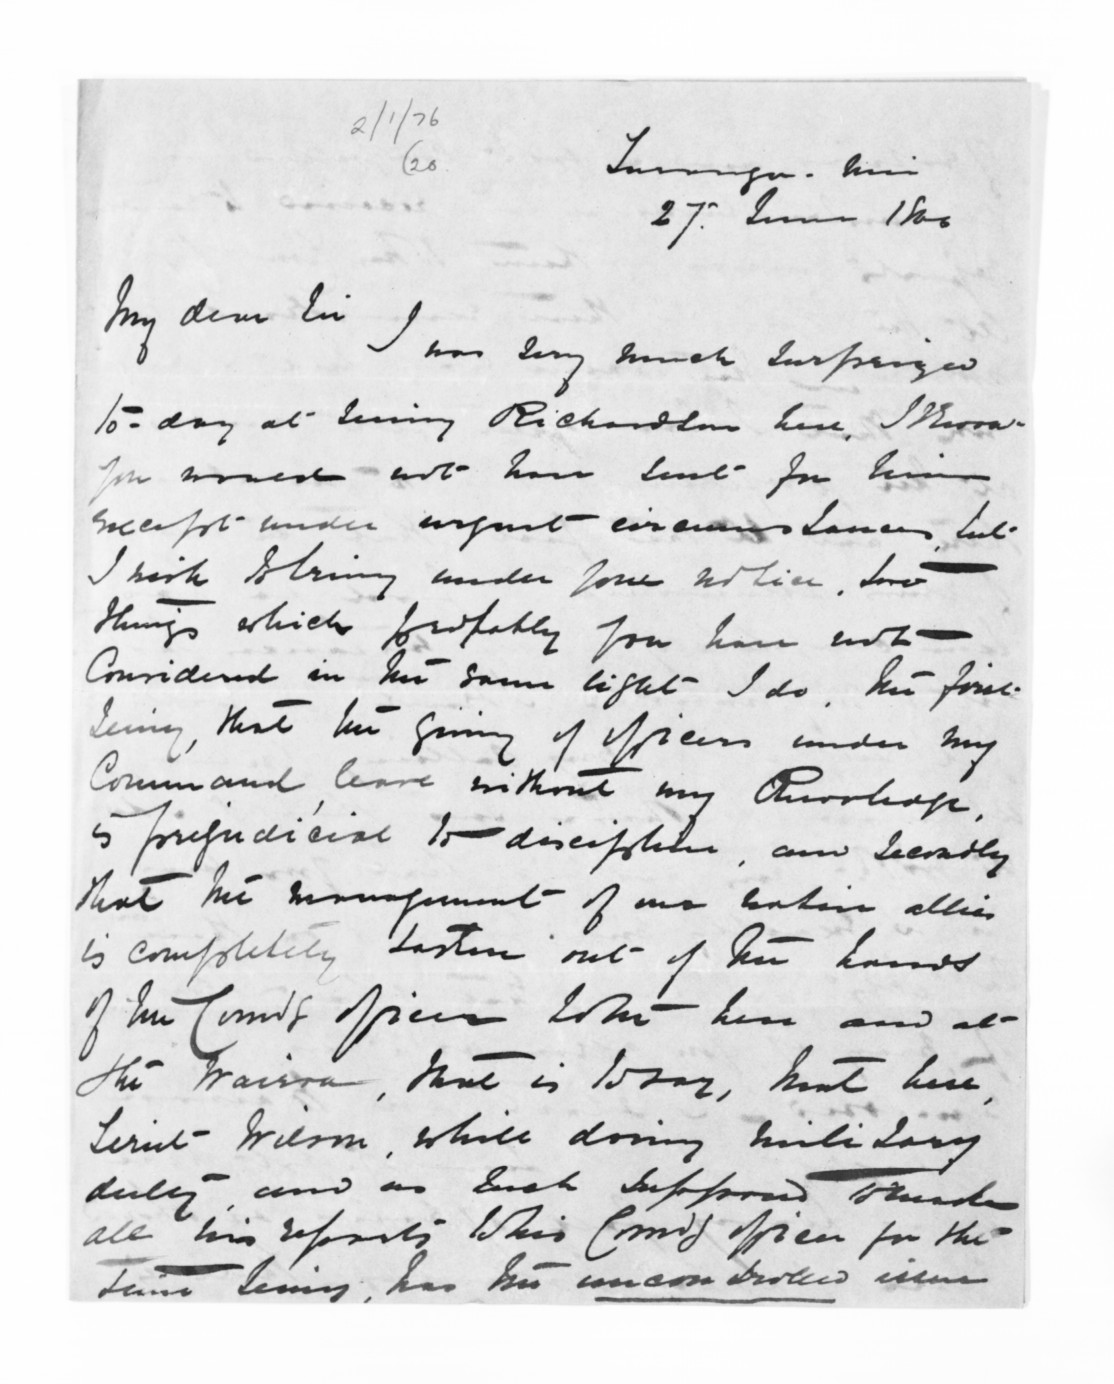 2/1/76
(20
Turanga. nui
27. June 1866
My dear Sir
I was very much surprized
to-day at seeing Richardson here, I know
you would not have sent for him
except under urgent circumstances, but
I wish to bring under your notice, two
things which probably you have not
Considered in the same light I do, the first
being, that the giving of officers under my
Command, leave without my Knowledge,
is prejudicial to discipline, and secondly
that the management of our native allies
is completely taken out of the hands
of the Comdg officer both here and at
the Wairoa, that is to say, that here,
Lieut Wilson, while doing military
duty, and as such supposed to make
all his reports to his Comdg officer for the
time being, has the uncontrolled issue